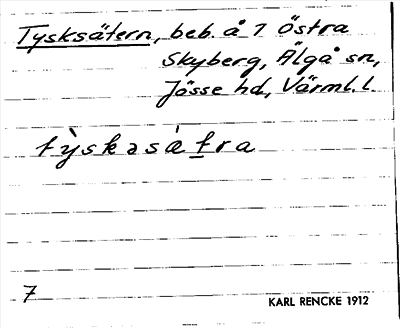 Tysksätern, beb. å 7 Östra
Skyberg, Älgå sn,
Jösse hd, Värml. l.
tỳskəsǽt̲ra
7
KARL RENCKE 1912